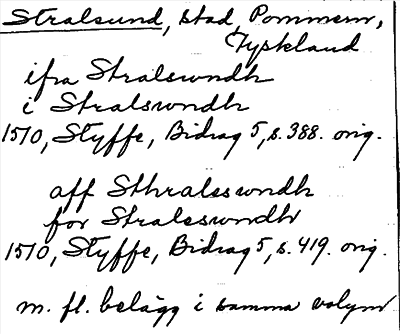 Stralsund, stad, Pommern,
Tyskland
ifra Stralswndh
i Stralswndh
1510, Styffe, Bidrag 5, s. 388. orig.
aff Sthralsswndh
for Stralsswndh
1510, Styffe, Bidrag 5, s. 419. orig.
m. fl. belägg i samma volym